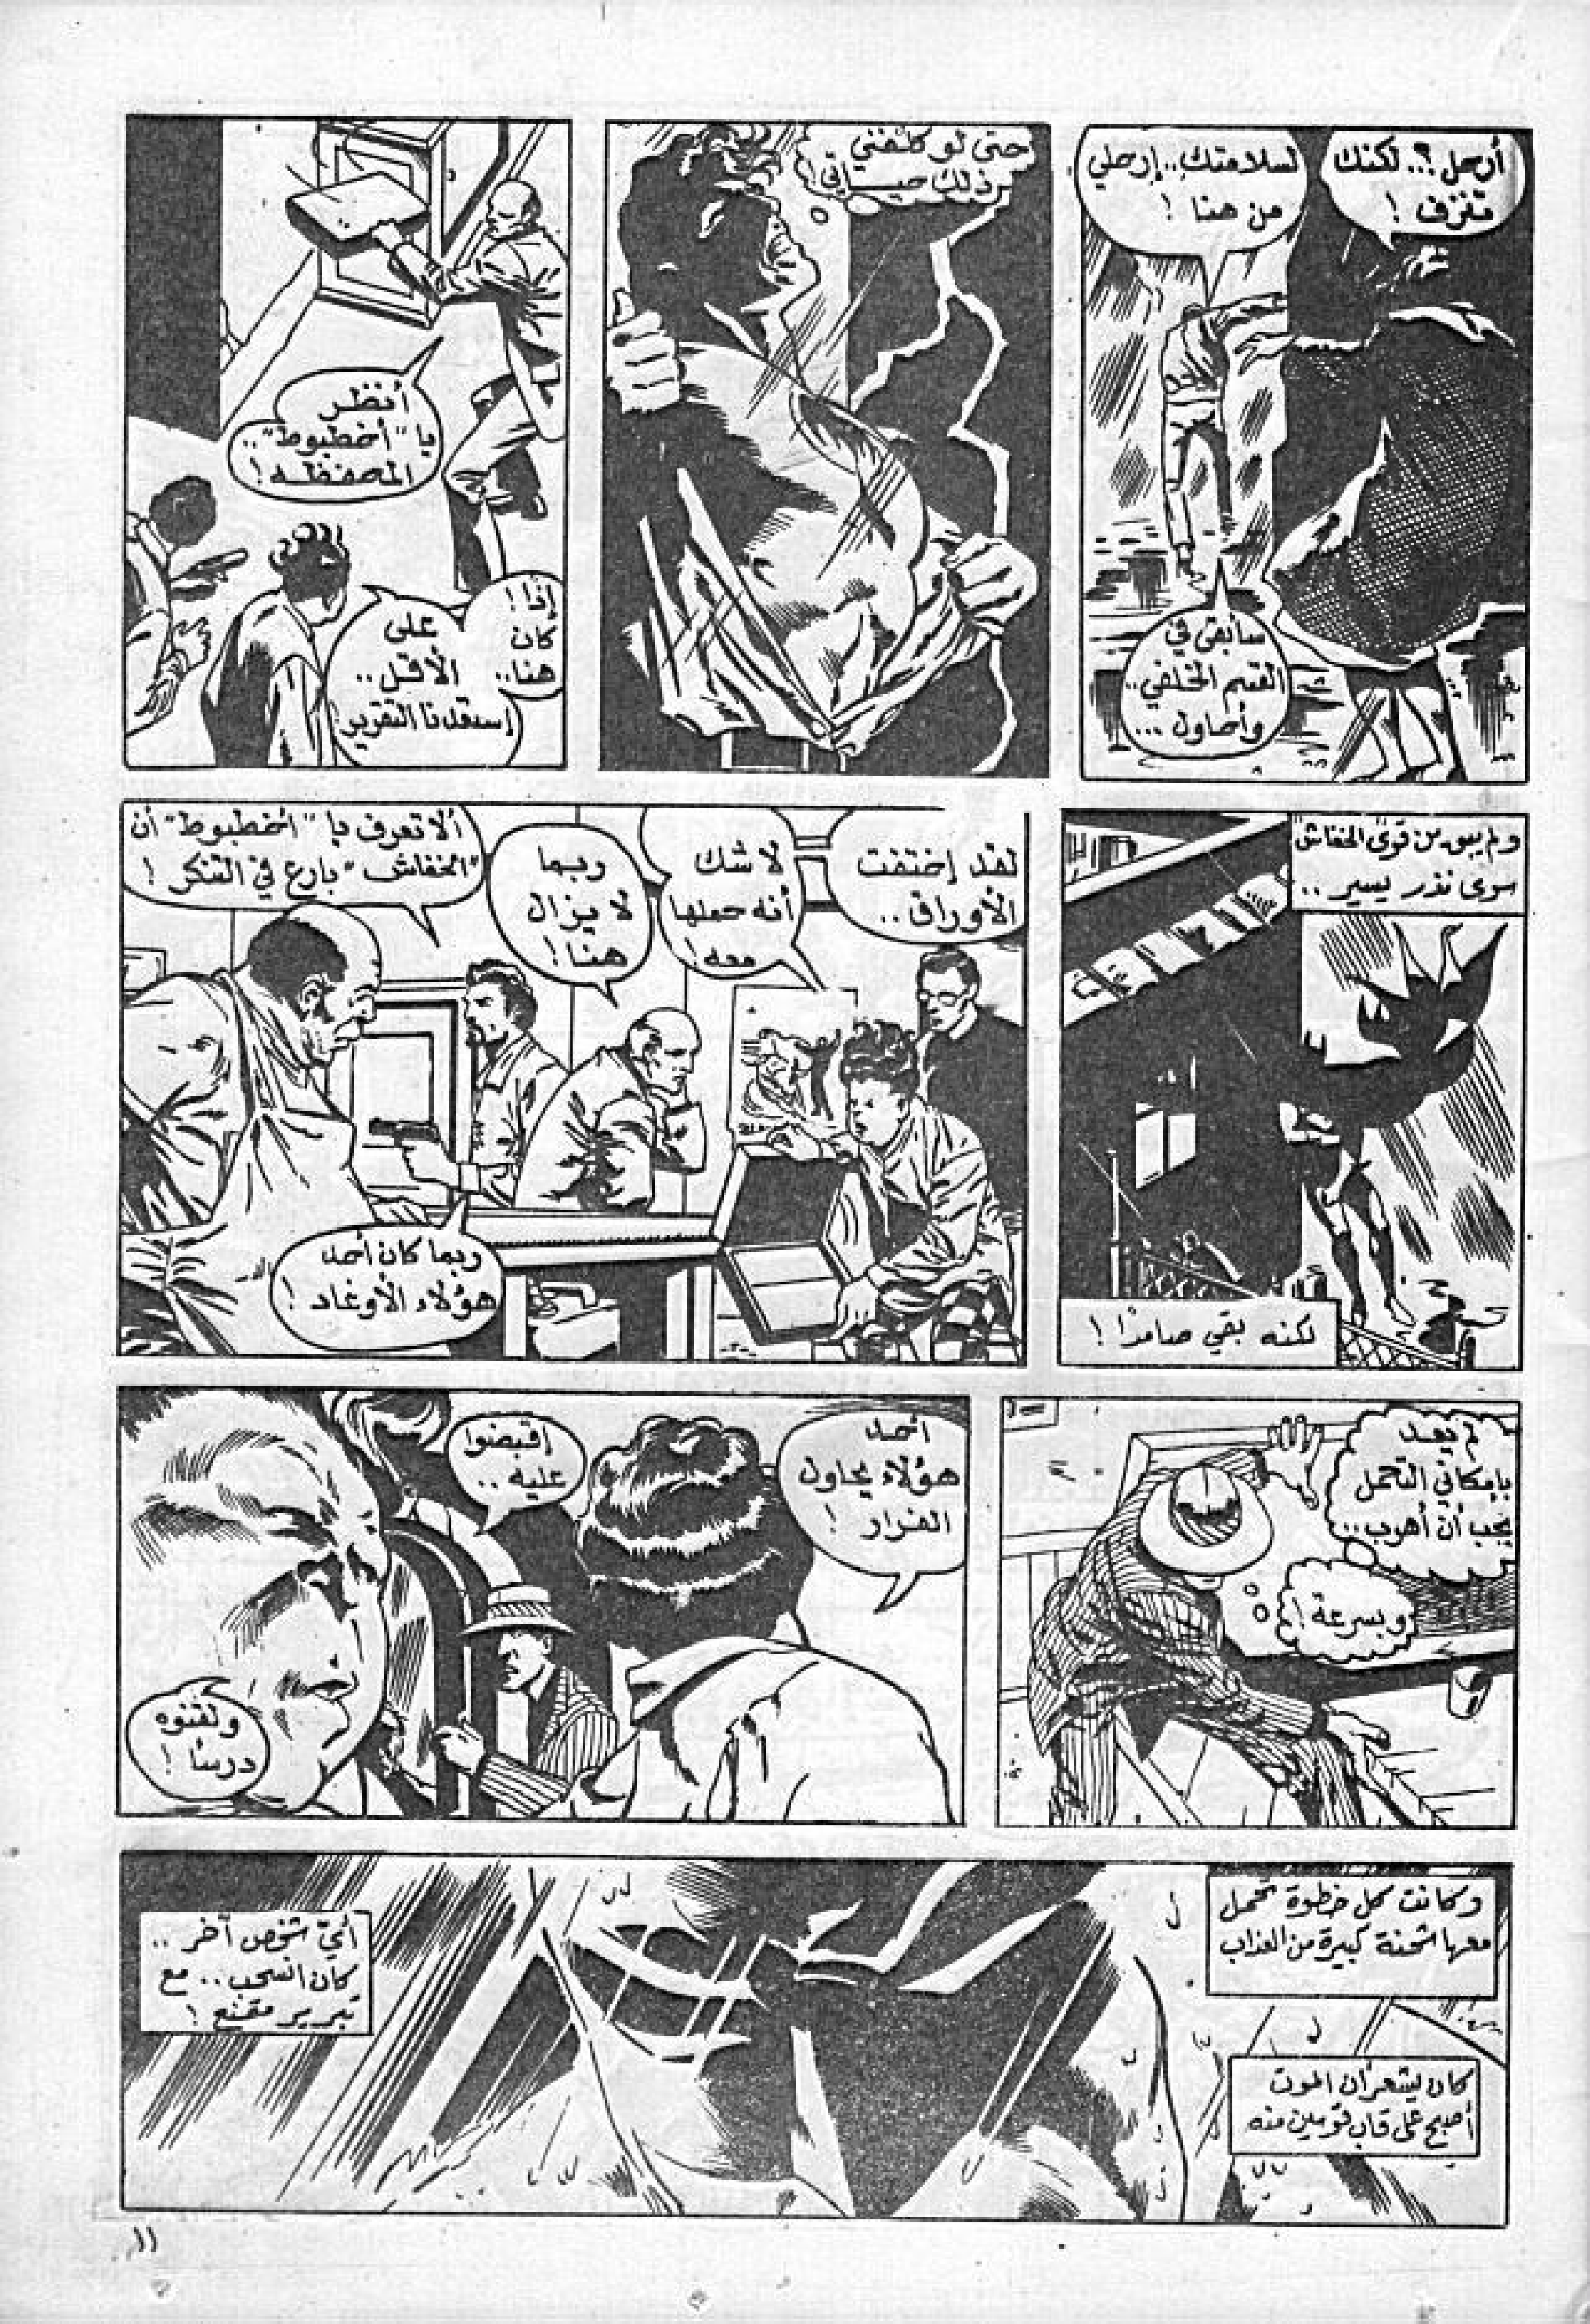 أرحل؟.. لكنك
تنزف!
لسلامتك.. إرحلي
من هنا!
سأبقى في
القسم الخلفي..
وأحاول ...
حتى لو كلفني
ذلك حياتي!
أنظر
يا "أخطبوط"..
المحفظه!
إذاً!
كان
هنا..
على
الأقل..
إستعدنا التقرير!
ولم يبق من قوى الخفاش
سوى نذر يسير ..
لكنه بقي صامدًا!
لقد إختفت
الأوراق ..
لا شك
أنه حملها
معه!
ربما
لا يزال
هنا!
ألا تعرف يا "أخطبوط" أن
"الخفاش" بارع في التنكر!
ربما كان أحد
هؤلاء الأوغاد!
لم يعد
بإمكاني التحمل
يجب أن أهرب..
وبسرعة!
أحد
هؤلاء يحاول
الفرار!
إقبضوا
عليه ..
ولقنوه
درسًا!
وكانت كل خطوة تحمل
معها شحنة كبيرة من العذاب
كان يشعر أن الموت
أصبح على قاب قوسين منه
أيّ شخص آخر ..
كان انسحب.. مع
تبرير مقنع!
١١